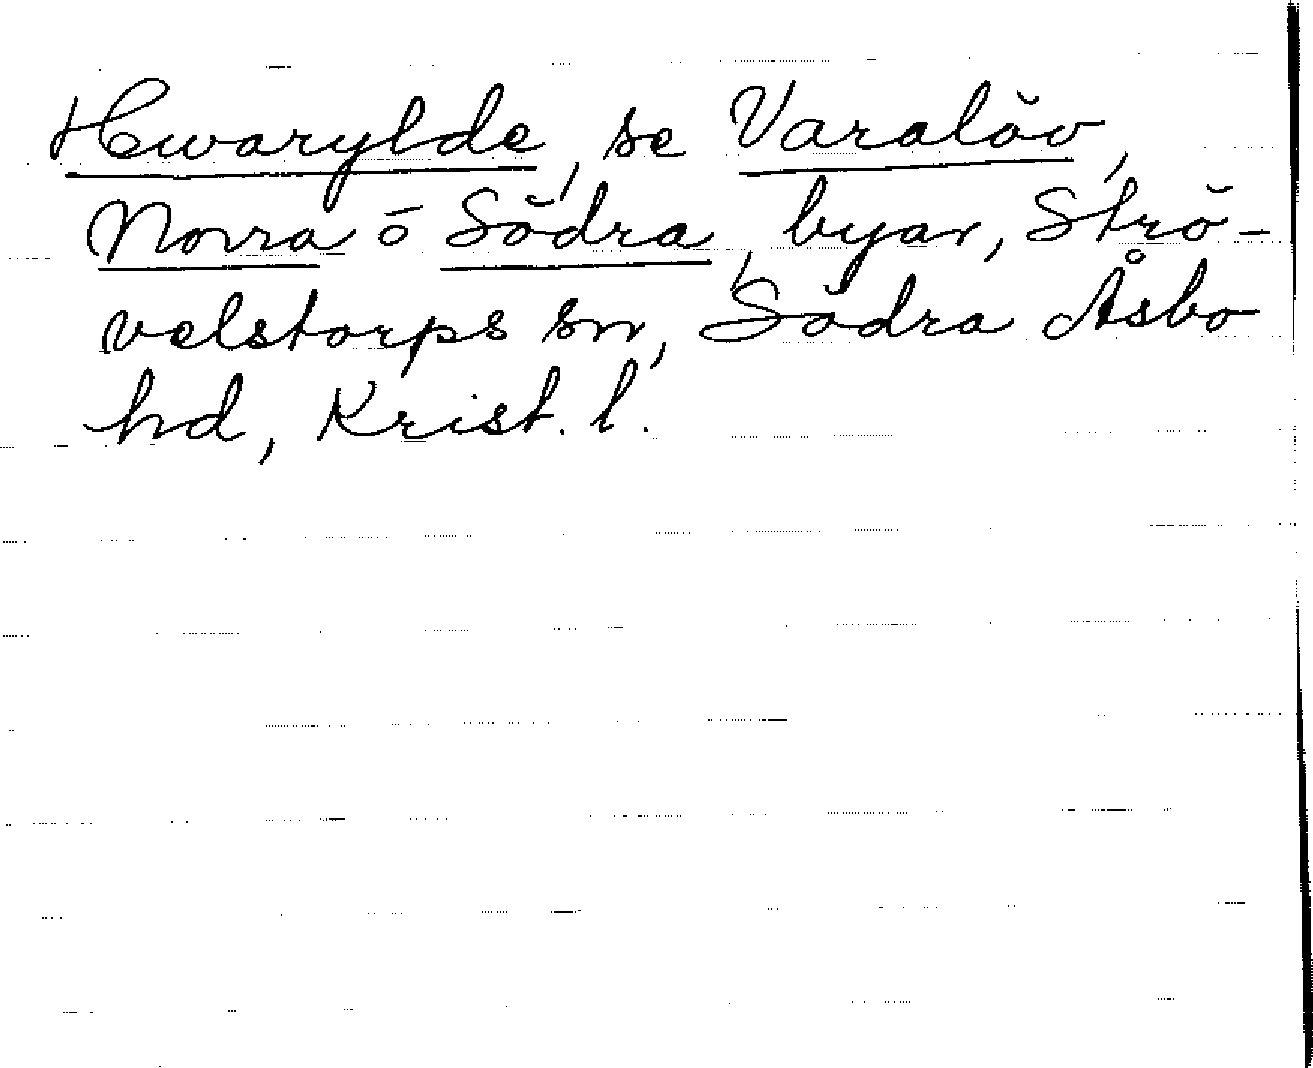 Hwarylde, se Varalöv,
Norra o Södra, byar, Strö-
velstorps sn, Södra Åsbo
hd, Krist. l.